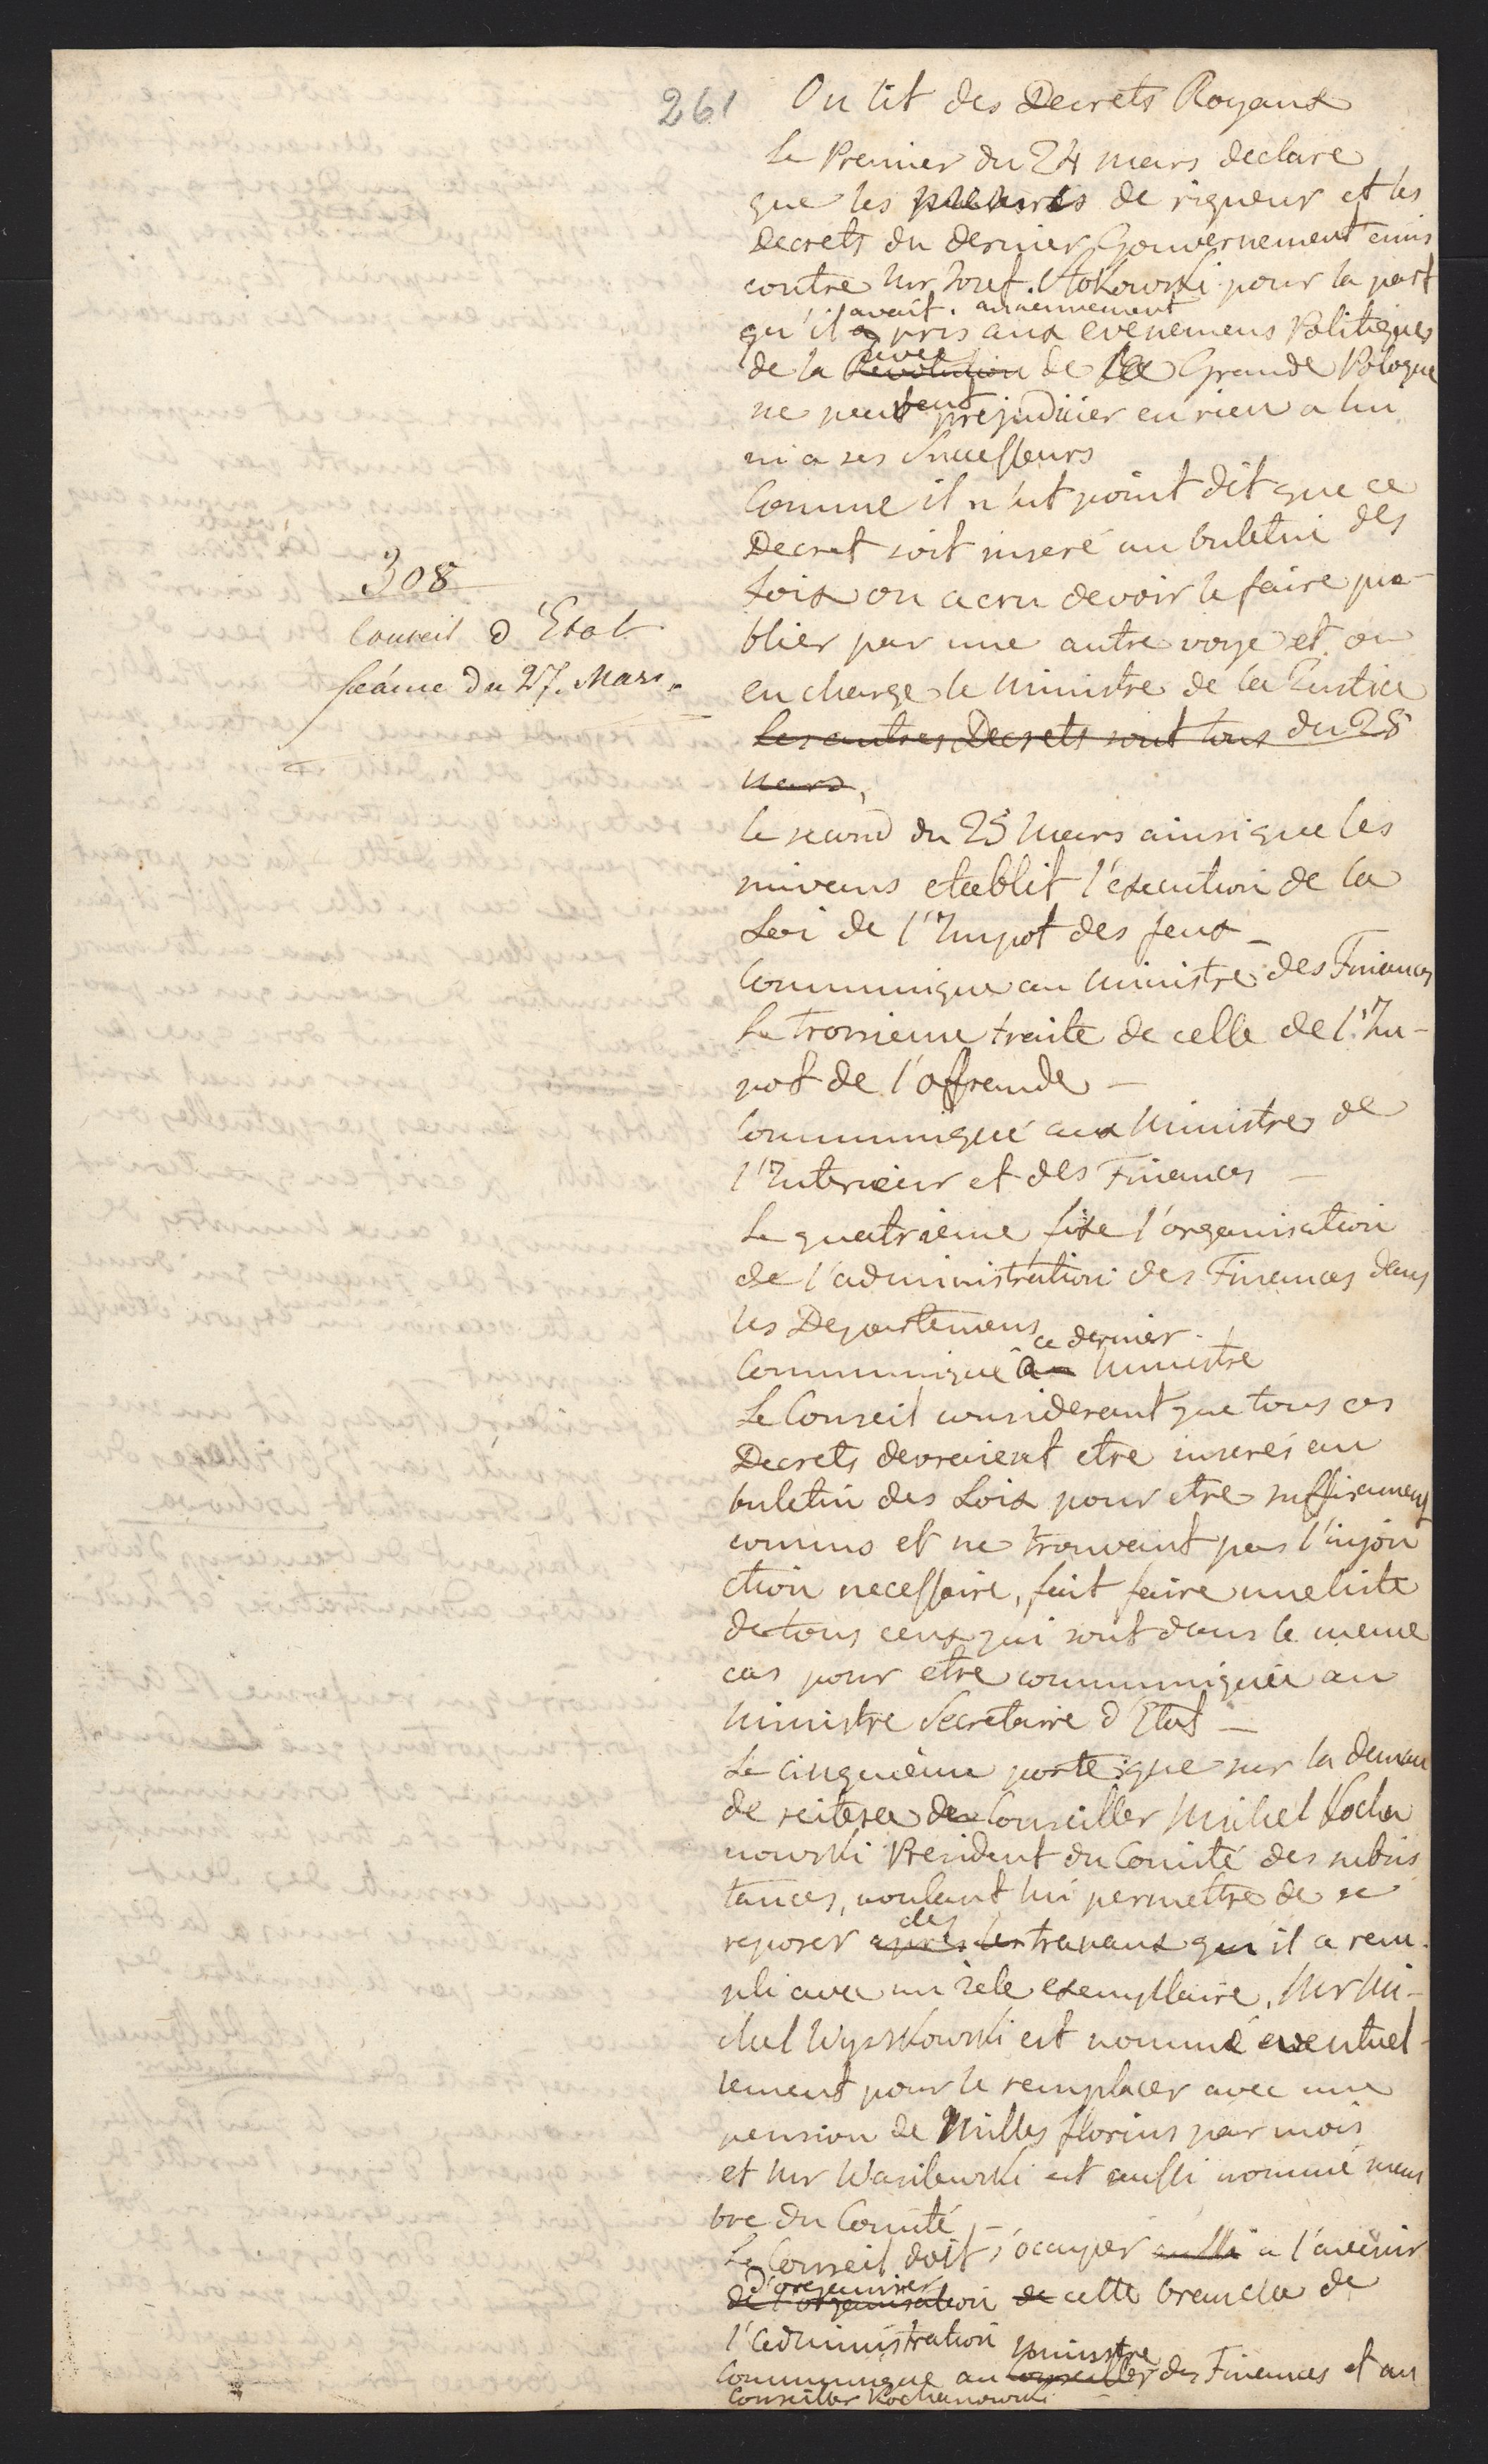 261
On lit des Decrets Royaux
Le Premier du 24 mars declare
que les mesures de rigueur et les
Decrets du dernier Gouvernement emis
contre Mr Josef Stokowski pour la part
avait anciennement
qu'il a pris aux evenemens Politiques
de la Revolution de la Grande Pologne
ne peuvent prejudicier en rien a lui
ni a ses Successeurs
Comme il n'est point dit que ce
Decret soit inseré au buletin des
Loix on a cru devoir le faire pu-
blier par une autre voye et on
en charge le Ministre de la Justice
308
Conseil d'Etat
séance du 27. Mars.
Les autres Decrets sont tous du 28
Mars,
le second du 25 Mars ainsi que les
suivans etablit l'execution de la
Loi de l'Impot des feux _
Communique au Ministre des Finances
Le Troisieme traite de celle de l'Im-
pot de l'offrande —
Communiqué aux Ministres de
l'Interieur et des Finances —
Le quatrieme fixe l'organisation
de l'administration des Finances dans
les Departemens
ce dernier
Communiqué a Ministre
Le Conseil considerant que tous ces
Decrets devraient etre inserés au
buletin des Loix pour etre suffisament
connus et ne trouvant pas l'injon
ction necessaire, fait faire une liste
de tous ceux qui sont dans le meme
cas pour etre communiquée au
Ministre Secretaire d'Etat —
Le cinquieme porte que sur la deman
de reiterée de Conseiller Michel Kocha
nowski President du Comité des subsis
tances, voulant lui permettre de se
des
reposer après les travaux qu'il a rem-
pli avec un zele exemplaire, Mr Mi-
chel Wyszkowski est nommé eventuel-
lement pour le remplacer avec une
pension de Milles florins par mois
et Mr Wasilewski est aussi nommé mem
bre du Comité —
Le Conseil doit s'occuper aussi a l'avenir
d'organiser
de l'organisation de cette branche de
l'administration
Ministre
Communique au Conseiller des Finances et au
Conseiller Kochanowski